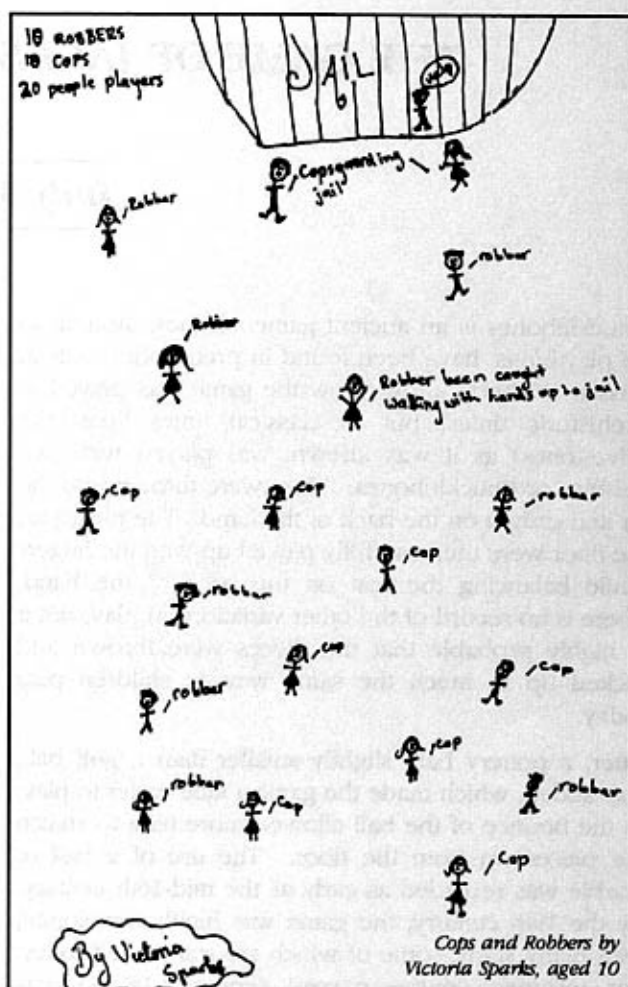 10 ROBBERS
10 COPS
20 people players
JAIL
Cops guarding
jail
Robber
robber
Robber
Robber been caught
walking with hands up to jail
cop
cop
robber
cop
robber
cop
cop
robber
cop
robber
robber
cop
cop
By Victoria
Sparks
Cops and Robbers by
Victoria Sparks, aged 10